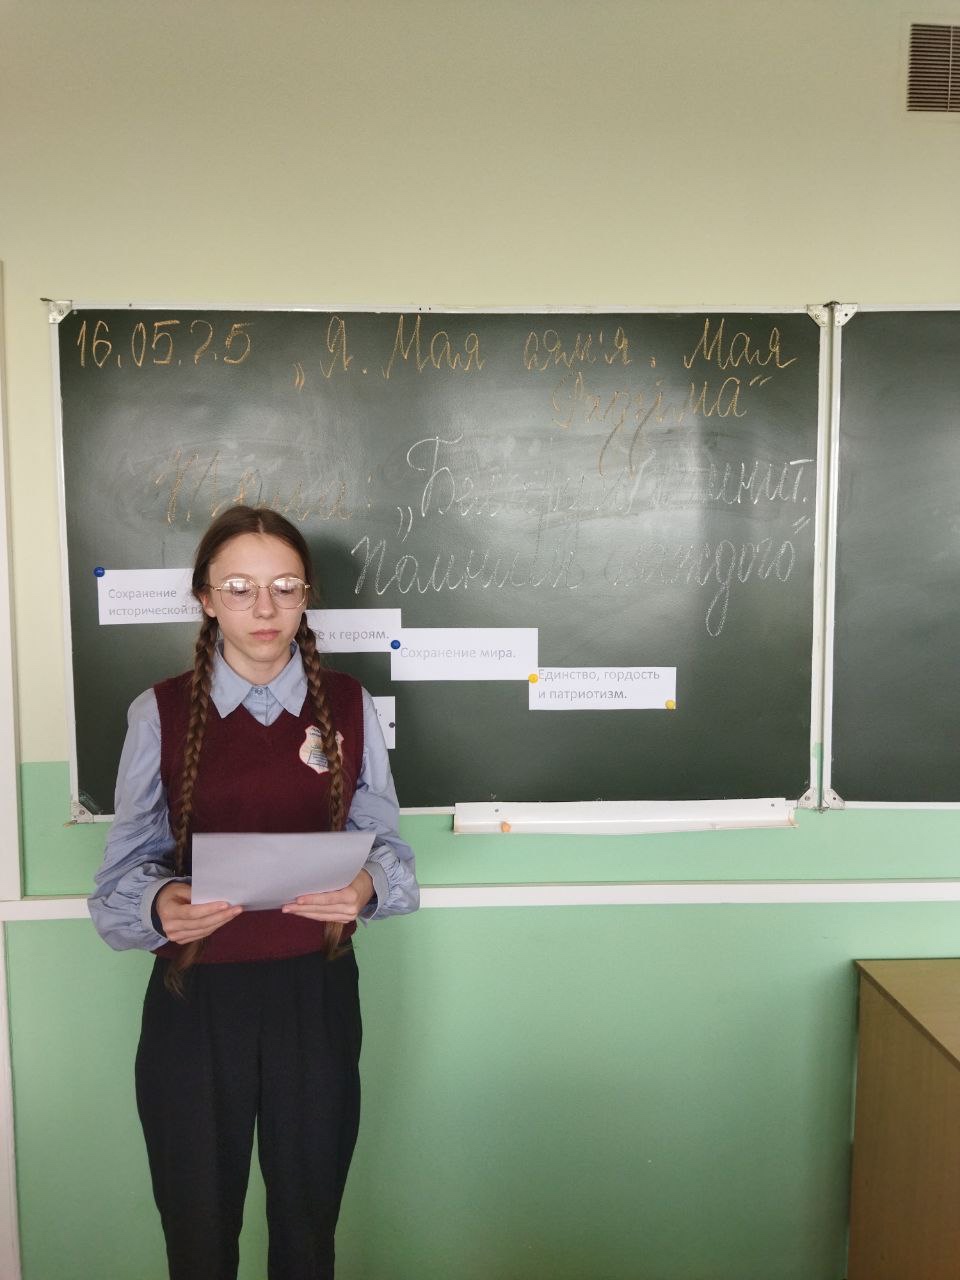 16.05.25 „Я. Мая сям'я. Мая
Радзіма“
Тема: „Беларусь помнит.
Помним каждого“
Сохранение
исторической
к героям.
Сохранение мира.
Единство, гордость
и патриотизм.